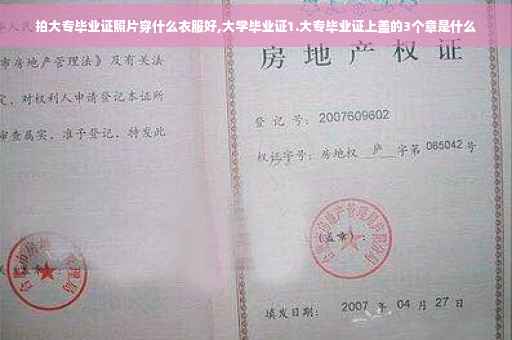 拍大专毕业证照片穿什么衣服好,大学毕业证1.大专毕业证上盖的3个章是什么
市房地产管理法》及有关法
定，对权利人申请登记本证所
审查属实，准予登记，特发此
房地产权
登记号：2007609602
权证字号：房地权 庐 字第 065042 号
(盖章)：
填发日期：2007 年 04 月 27 日